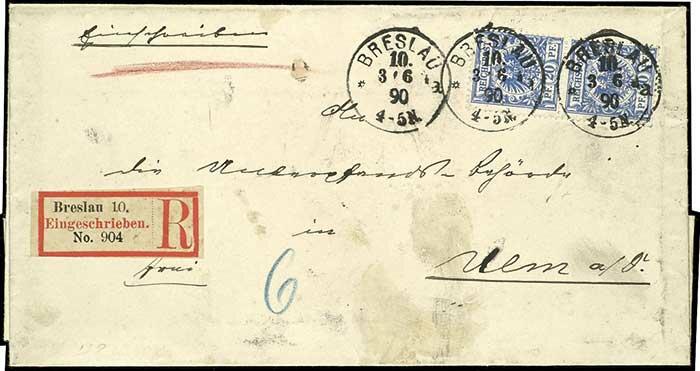 Einschreiben
BRESLAU
10.
3 6
90
4-5N.
* a
BRESLAU
10.
3 6
90
4-5N.
BRESLAU
10.
3 6
90
4-5N.
* a
REICHSPOST
20 PF
An
die Unterpfands-Behörde
in
Ulm a/D.
Breslau 10.
Eingeschrieben.
No. 904
R
frei
6